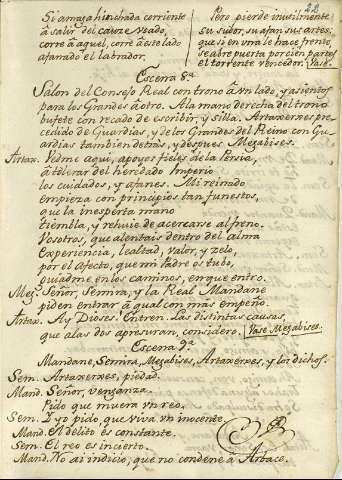 22
Si amaga hinchada corriente
à salir del cauze vsado,
corre à aquel, corre à este lado
afanado el labrador.
Pero pierde inutilmente
su sudor, su afan, sus artes;
que si en vna le hace frente,
se abre puerta por cien partes
el torrente vencedor. Vase.
Escena 8.ª
Salon del Consejo Real con trono à vn lado, y asientos
para los Grandes à otro. A la mano derecha del trono
bufete con recado de escribir, y silla. Artaxerxes pre-
cedido de Guardias, y de los Grandes del Reino con Gu-
ardias tambien detras, y despues Megabises.
Artax. Vedme aqui, apoyos fieles de la Persia,
à tolerar del heredado Imperio
los cuidados, y afanes. Mi reinado
empieza con principios tan funestos,
que la inesperta mano
tiembla, y rehuie de acercarse al freno.
Vosotros, que alentais dentro del alma
Experiencia, lealtad, valor, y zelo,
por el afecto, que mi Padre os tubo,
guiadme en los caminos, en que entro.
Meg. Señor, Semira, y la Real Mandane
piden entrar à qual con más empeño.
Artax. Ay Dioses! Entren. Las distintas causas,
que à las dos apresuran, considero. Vase Megabises.
Escena 9.ª
Mandane, Semira, Megabises, Artaxerxes, y los dichos.
Sem. Artaxerxes, piedad.
Mand. Señor, venganza.
Pido que muera vn reo.
Sem. I yo pido, que viva vn inocente.
Mand. El delito es constante.
Sem. El reo es incierto.
Mand. No ai indicio, que no condene à Arbace.